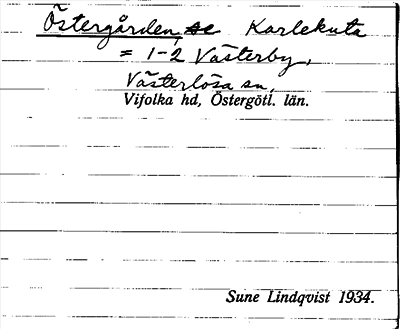 Östergården, se Karlekuta
= 1-2 Västerby,
Västerlösa sn,
Vifolka hd, Östergötl. län.
Sune Lindqvist 1934.